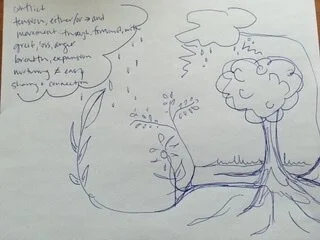 conflict
tension, either/or → and
movement through torment, with
grief, loss, anger
breadth, expansion
nurturing ≠ easy
sharing + connection